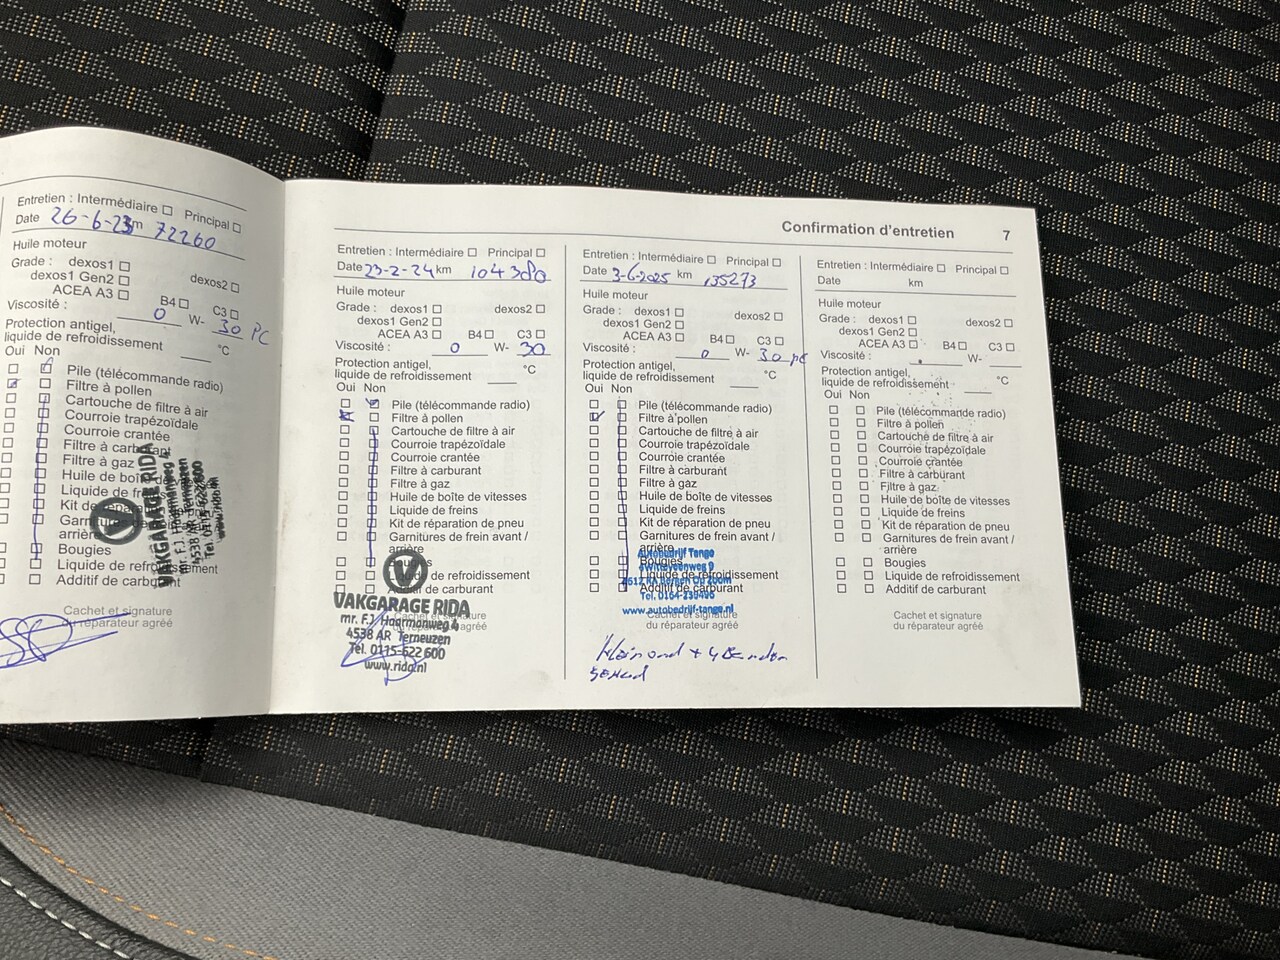 Entretien : Intermédiaire Principal
Date 26-6-23 km 72260
Huile moteur
Grade : dexos1 dexos2
dexos1 Gen2
ACEA A3 B4 C3
Viscosité : 0 W- 30 PC
Protection antigel,
liquide de refroidissement °C
Oui Non
Pile (télécommande radio)
Filtre à pollen
Cartouche de filtre à air
Courroie trapézoïdale
Courroie crantée
Filtre à carburant
Filtre à gaz
Huile de boîte de vitesses
Liquide de freins
Kit de
Garnitures
Bougies
Liquide de refroidissement
Additif de carburant
VAKGARAGE RIDA
mr. F.J. Haarmanweg
4538 AR Terneuzen
Tel. 0115-622600
Cachet et signature
du réparateur agréé
Confirmation d'entretien 7
Entretien : Intermédiaire Principal
Date 23-2-24 km 104380
Huile moteur
Grade : dexos1 dexos2
dexos1 Gen2
ACEA A3 B4 C3
Viscosité : 0 W- 30
Protection antigel,
liquide de refroidissement °C
Oui Non
Pile (télécommande radio)
Filtre à pollen
Cartouche de filtre à air
Courroie trapézoïdale
Courroie crantée
Filtre à carburant
Filtre à gaz
Huile de boîte de vitesses
Liquide de freins
Kit de réparation de pneu
Garnitures de frein avant /
arrière
Bougies
Liquide de refroidissement
Additif de carburant
VAKGARAGE RIDA
mr. F.J. Haarmanweg 4
4538 AR Terneuzen
Tel. 0115-622600
www.rida.nl
Cachet et signature
du réparateur agréé
Entretien : Intermédiaire Principal
Date 3-6-2025 km 135273
Huile moteur
Grade : dexos1 dexos2
dexos1 Gen2
ACEA A3 B4 C3
Viscosité : 0 W- 30
Protection antigel,
liquide de refroidissement °C
Oui Non
Pile (télécommande radio)
Filtre à pollen
Cartouche de filtre à air
Courroie trapézoïdale
Courroie crantée
Filtre à carburant
Filtre à gaz
Huile de boîte de vitesses
Liquide de freins
Kit de réparation de pneu
Garnitures de frein avant /
arrière
Bougies
Liquide de refroidissement
Additif de carburant
Autobedrijf Tango
4612 RA Bergen Op Zoom
Tel. 0164-239496
www.autobedrijf-tango.nl
Cachet et signature
du réparateur agréé
Klein ond + 4 Banden
Entretien : Intermédiaire Principal
Date km
Huile moteur
Grade : dexos1 dexos2
dexos1 Gen2
ACEA A3 B4 C3
Viscosité : W-
Protection antigel,
liquide de refroidissement °C
Oui Non
Pile (télécommande radio)
Filtre à pollen
Cartouche de filtre à air
Courroie trapézoïdale
Courroie crantée
Filtre à carburant
Filtre à gaz
Huile de boîte de vitesses
Liquide de freins
Kit de réparation de pneu
Garnitures de frein avant /
arrière
Bougies
Liquide de refroidissement
Additif de carburant
Cachet et signature
du réparateur agréé